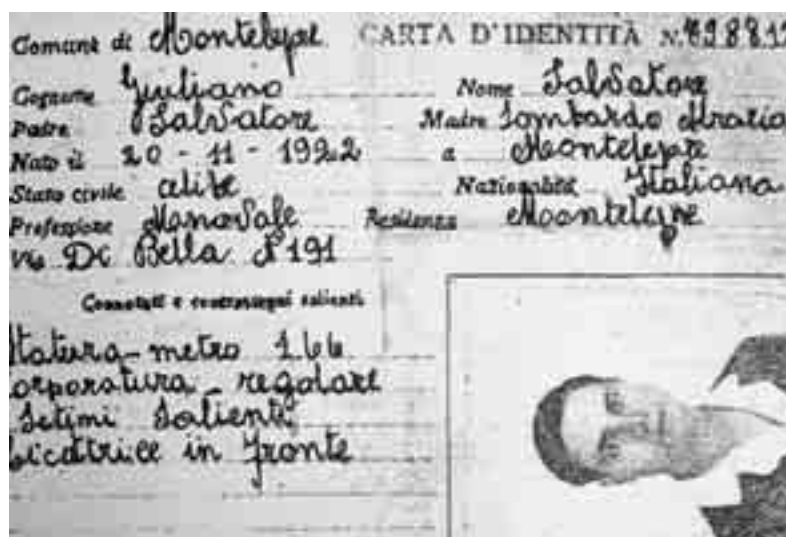 Comune di Montelepre CARTA D'IDENTITÀ N. 498812
Cognome Giuliano Nome Salvatore
Padre Salvatore Madre Lombardo Maria
Nato il 20 - 11 - 1922 a Montelepre
Stato civile celibe Nazionalità Italiana
Professione Manovale Residenza Montelepre
Via Di Bella N 191
Connotati e contrassegni salienti
Statura metro 1.66
Corporatura regolare
Salienti
Cicatrice in fronte